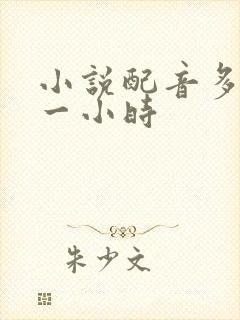 小説配音多
一小時
朱少文